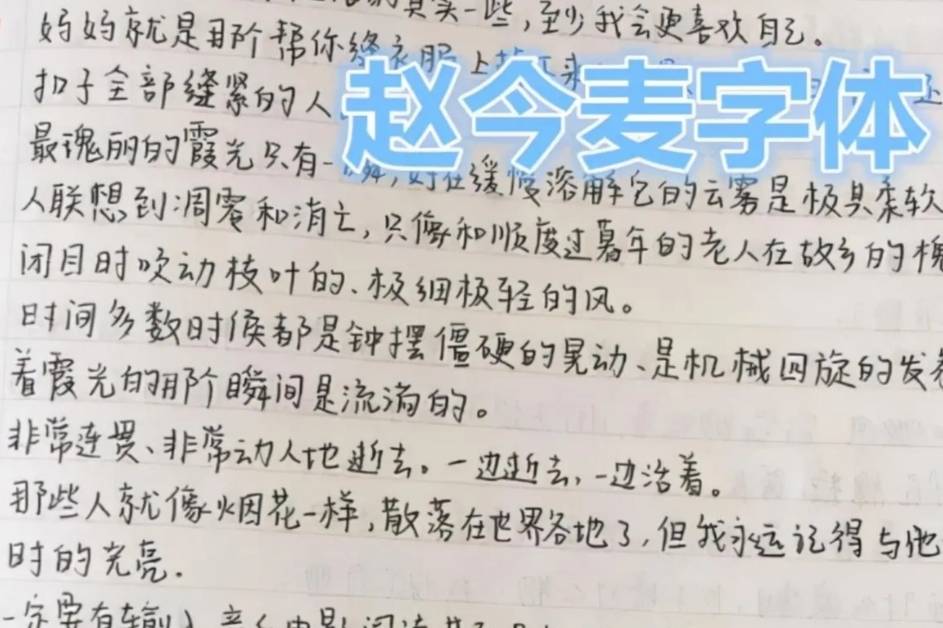 一些，至少我会更喜欢自己。
妈妈就是那个帮你缝衣服上掉
扣子全部缝紧的人
赵今麦字体
最瑰丽的霞光只有一瞬，好在缓慢溶解它的云雾是极其柔软
人联想到凋零和消亡，只像和顺度过暮年的老人在故乡的槐
闭目时吹动枝叶的、极细极轻的风。
时间多数时候都是钟摆僵硬的晃动、是机械回旋的发条
着霞光的那个瞬间是流淌的。
非常连贯、非常动人地逝去。一边逝去，一边活着。
那些人就像烟花一样，散落在世界各地了，但我永远记得与他
时的光亮.
一定要有输入